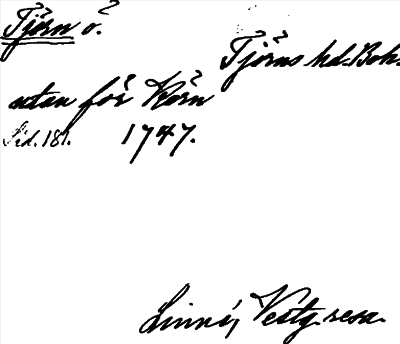 Tjörn ö.
Tjörns hd. Boh.
utan för Körn
Sid. 181. 1747.
Linné, Vestg. resa.